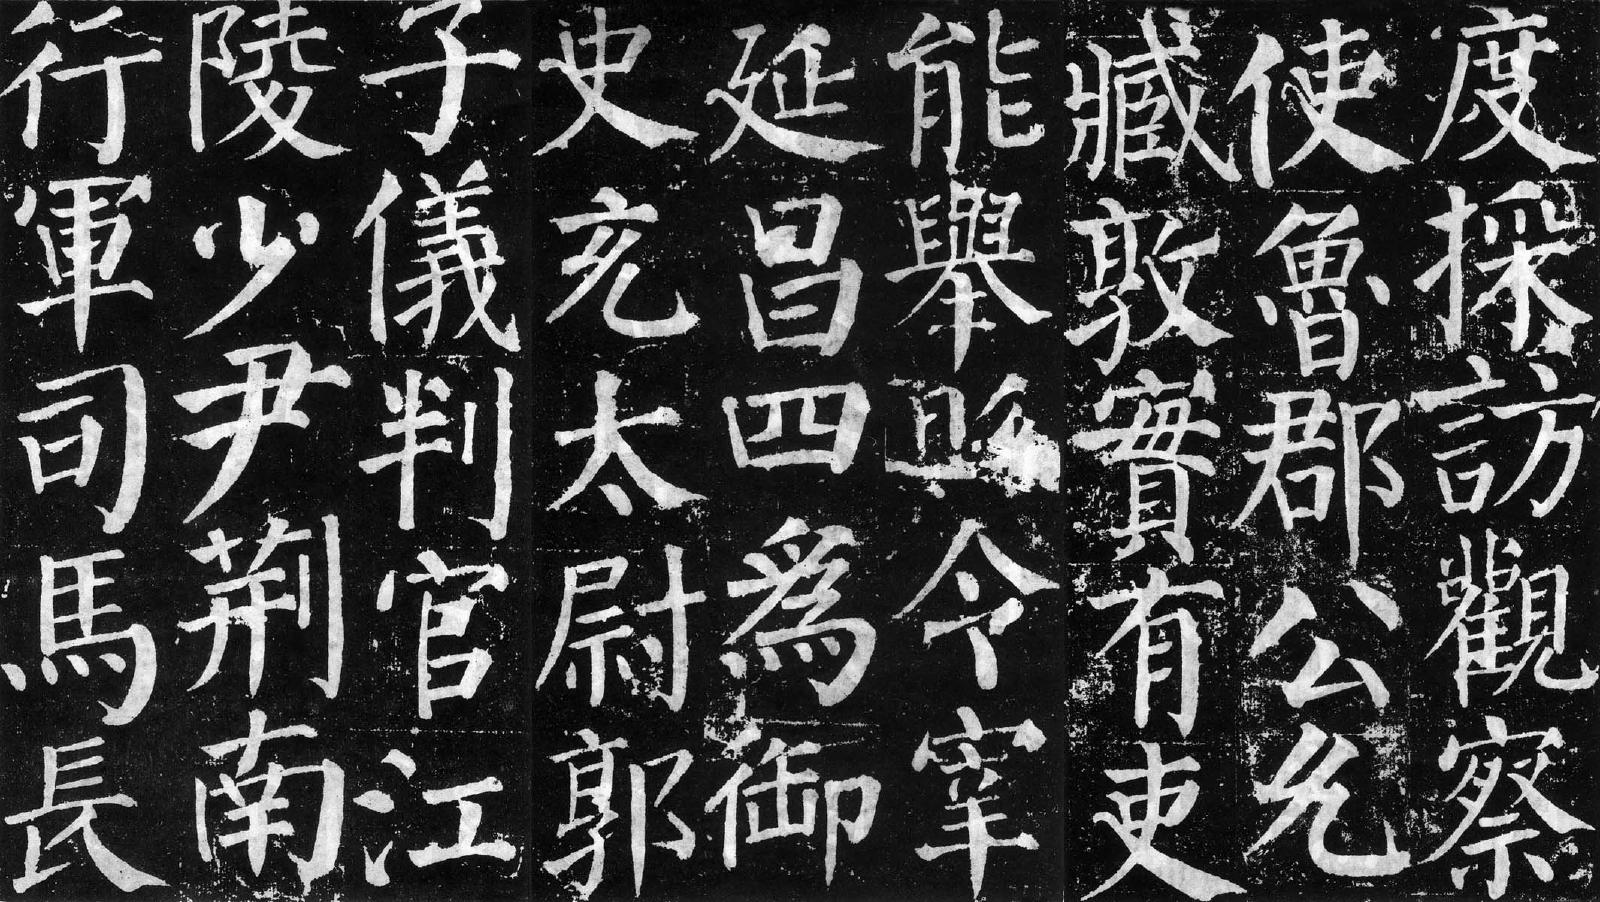 度採訪觀察
使魯郡公允
臧敦實有吏
能舉縣令宰
延昌四為御
史充太尉郭
子儀判官江
陵少尹荊南
行軍司馬長